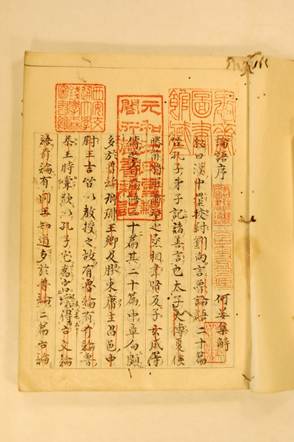 論語序 何晏集解
叙曰漢中壘校尉劉向言魯論語二十篇
皆孔子弟子記諸善言也太子大傅夏侯
勝前將軍蕭望之丞相韋賢及子玄成等
傳之齊論語廿二篇其二十篇中章句頗
多於魯論琅琊王卿及膠東庸生昌邑中
尉王吉皆以教授之故有魯論有齊論魯
恭王時嘗欲以孔子宅爲宮壞得古文論
語齊論有問王知道多於魯論二篇古論